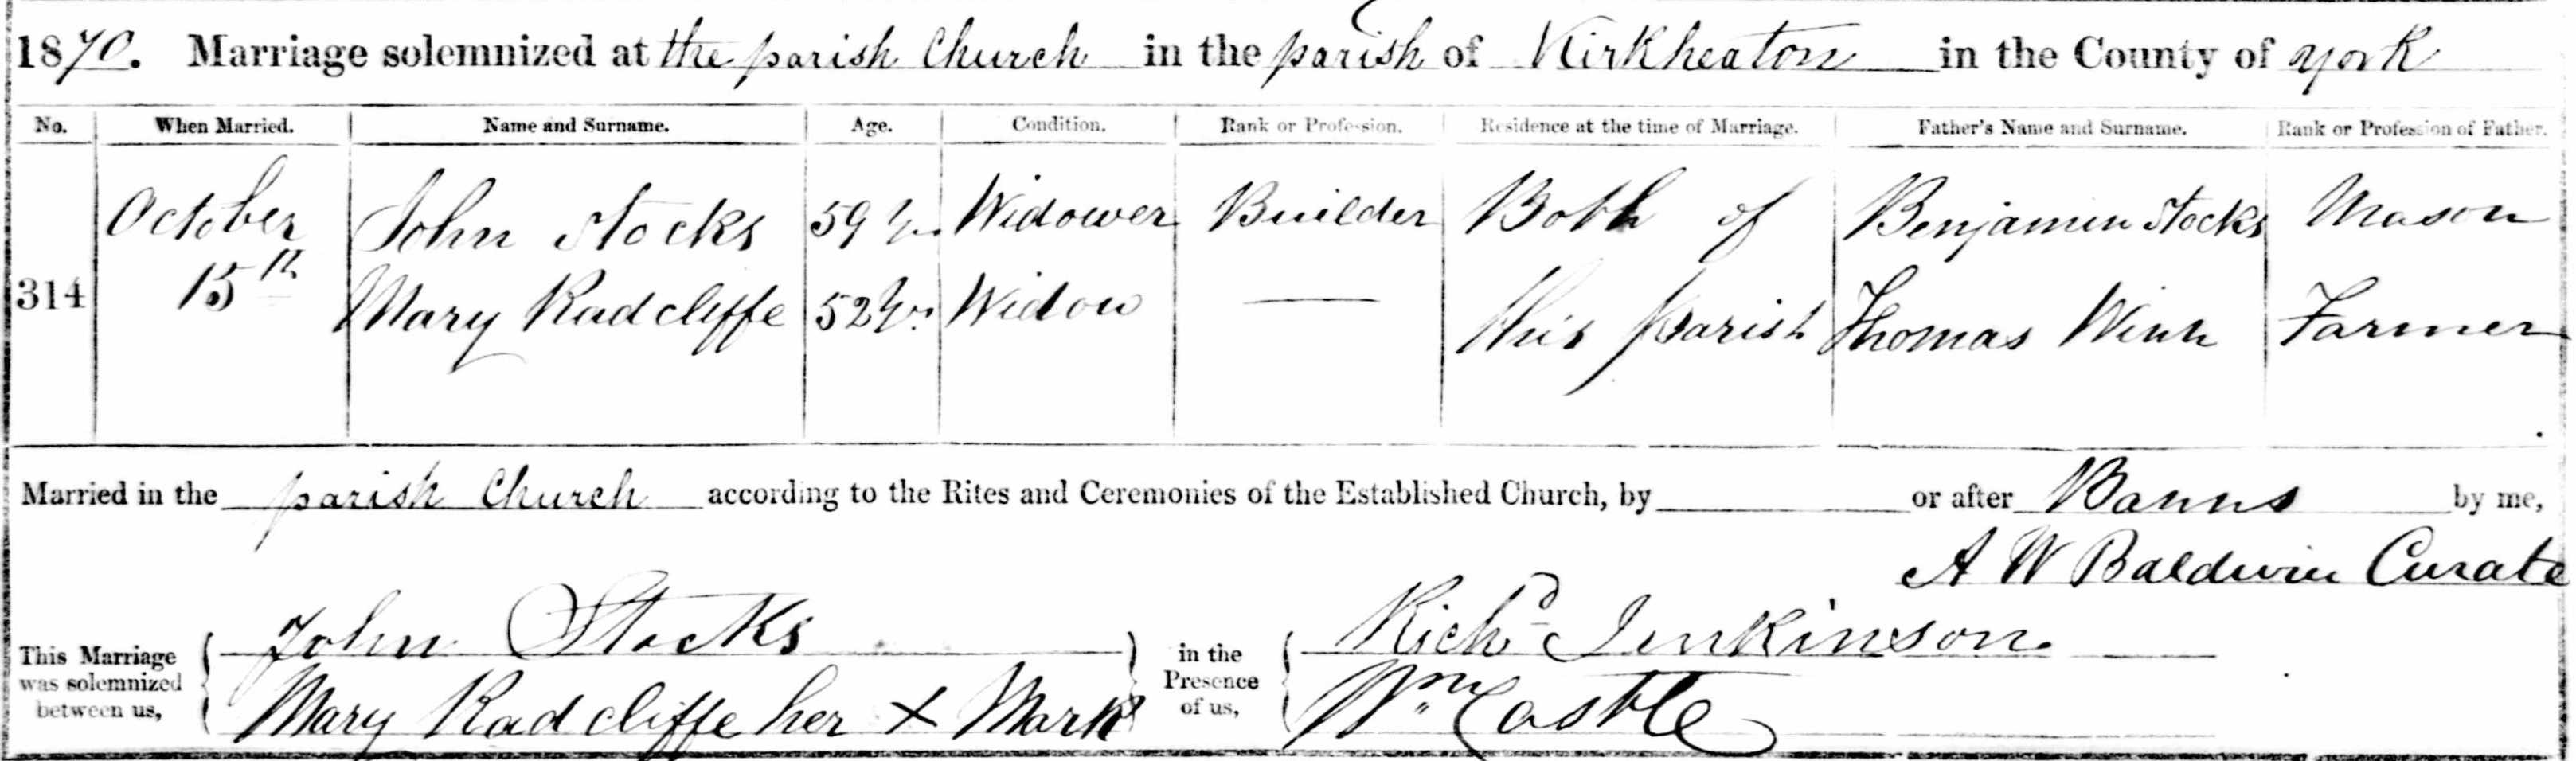 1870. Marriage solemnized at the parish Church in the parish of Kirkheaton in the County of York
No. When Married. Name and Surname. Age. Condition. Rank or Profession. Residence at the time of Marriage. Father's Name and Surname. Rank or Profession of Father.
October John Stocks 59 Yrs Widower Builder Both of Benjamin Stocks Mason
314 15th Mary Radcliffe 52 Yrs Widow — this parish Thomas Winn Farmer
Married in the parish Church according to the Rites and Ceremonies of the Established Church, by or after Banns by me,
A W Baldwin Curate
This Marriage was solemnized between us,
John Stocks
Mary Radcliffe her X Mark
in the Presence of us,
Richd Jenkinson
Wm Castle